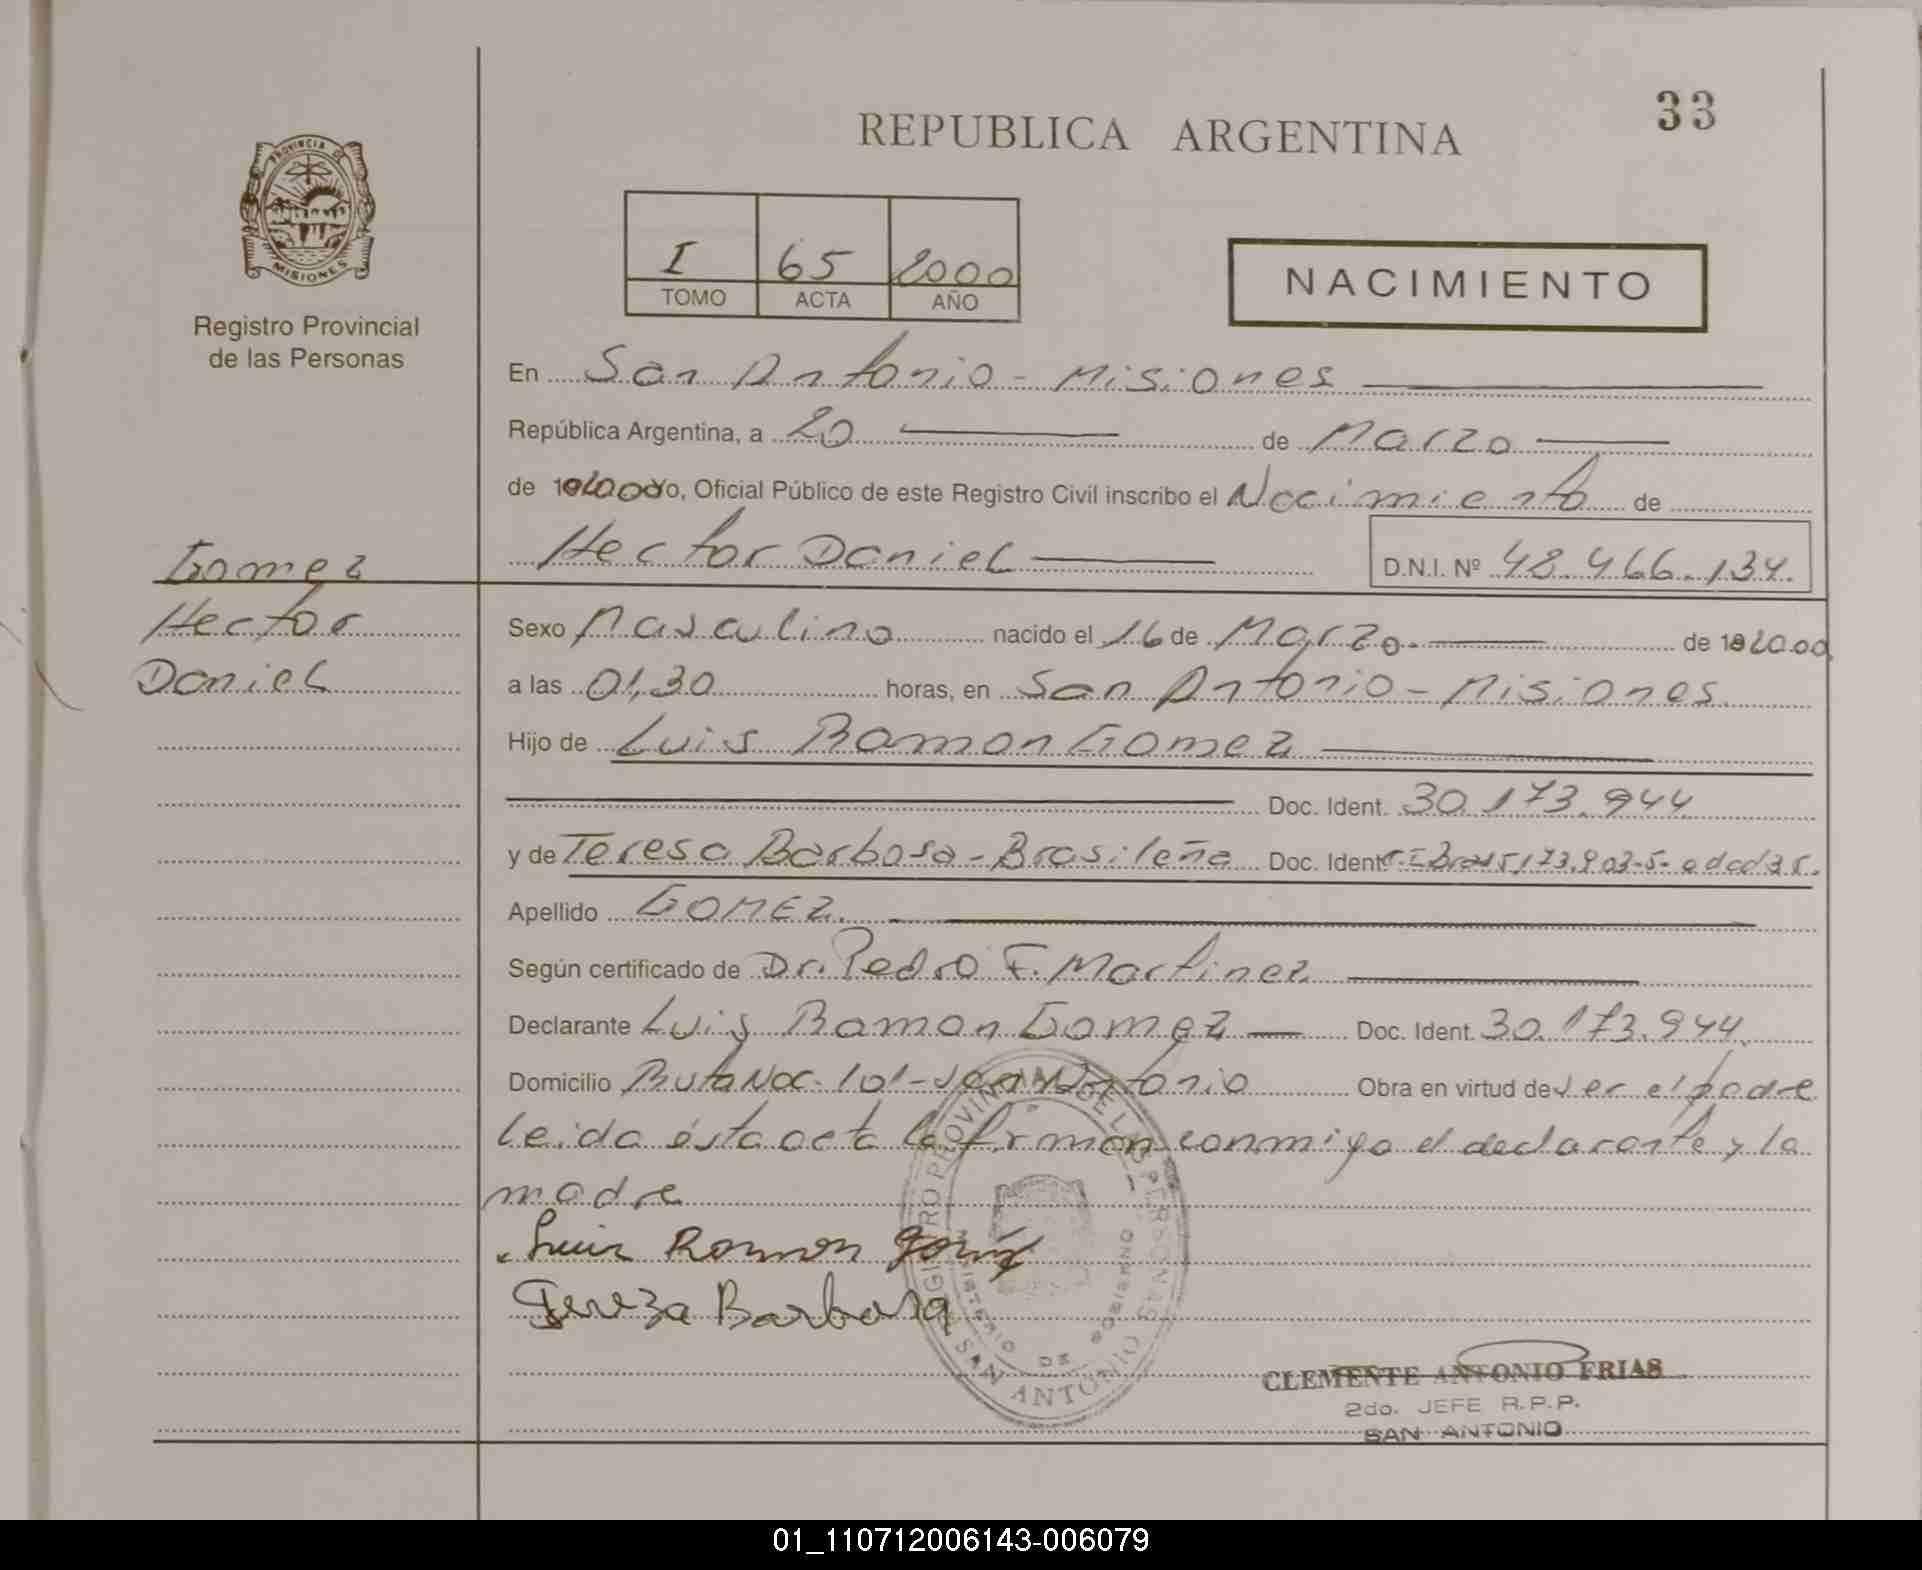 33
REPUBLICA ARGENTINA
PROVINCIA DE
MISIONES
Registro Provincial
de las Personas
I 65 2000
TOMO ACTA AÑO
NACIMIENTO
En San Antonio - Misiones
República Argentina, a 20 de Marzo
de 2000 yo, Oficial Público de este Registro Civil inscribo el Nacimiento de
Hector Daniel D.N.I. Nº 48.466.134.
Gomez
Hector
Daniel
Sexo Masculino nacido el 16 de Marzo. de 2000
a las 01,30 horas, en San Antonio - Misiones.
Hijo de Luis Ramon Gomez
Doc. Ident. 30.173.944
y de Teresa Barbosa - Brasileña Doc. Ident. 15,173.903-5- edad 35.
Apellido GOMEZ.
Según certificado de Dr. Pedro F. Martinez
Declarante Luis Ramon Gomez Doc. Ident. 30.173.944.
Domicilio Ruta Nac. 101 - San Antonio Obra en virtud de ser el padre
leida ésta acta la firman conmigo el declarante y la
madre
Luis Ramon Gomez
Tereza Barbosa
REGISTRO PROVINCIAL DE LAS PERSONAS
MINISTERIO DE GOBIERNO
SAN ANTONIO
CLEMENTE ANTONIO FRIAS
2do. JEFE R.P.P.
SAN ANTONIO
01_110712006143-006079